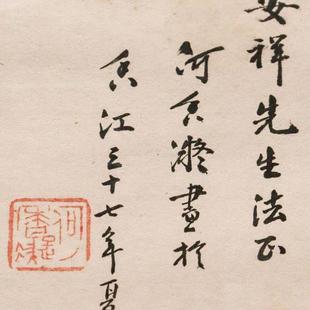 安祥先生法正
何香凝畫於
香江三十七年夏
何香凝